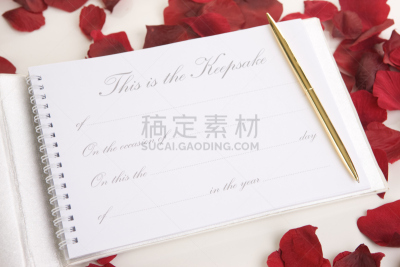 This is the Keepsake
of
On the occasion
day
On this the
of
in the year
稿定素材
SUCAI.GAODING.COM